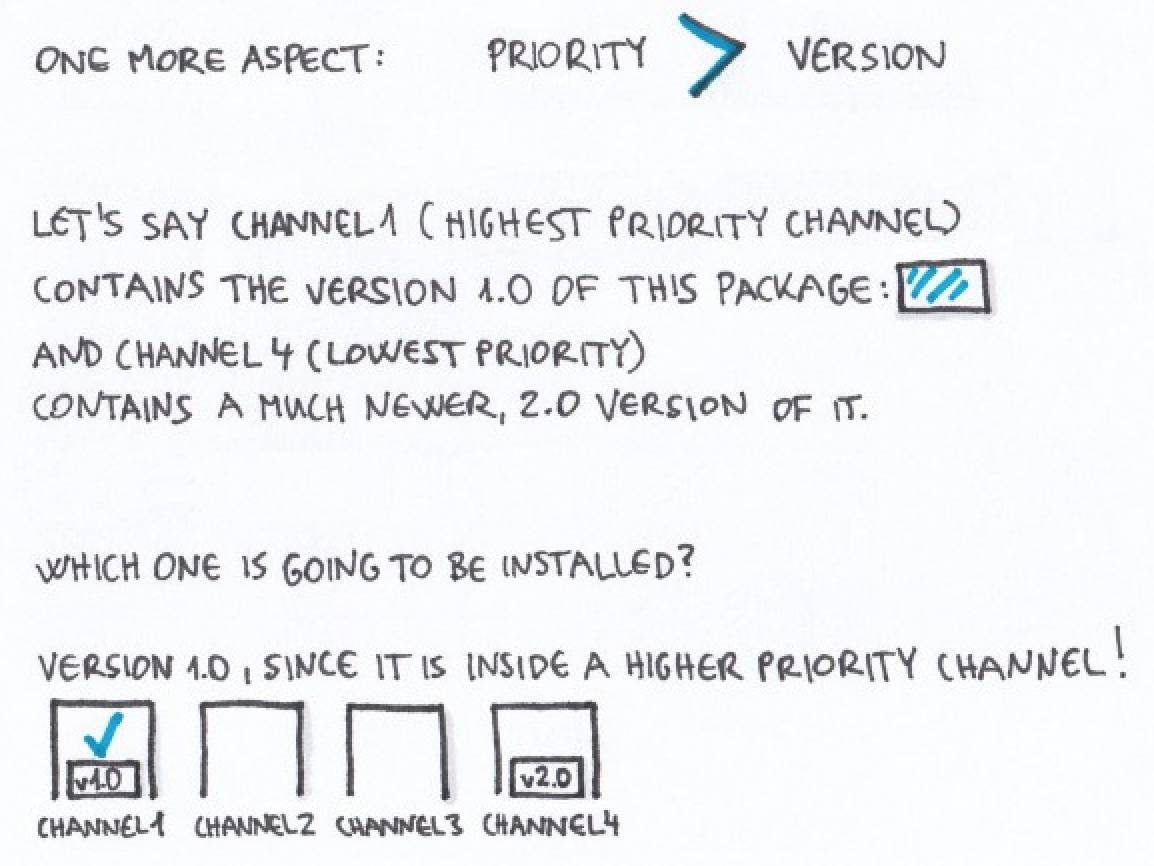 ONE MORE ASPECT: PRIORITY > VERSION
LET'S SAY CHANNEL1 (HIGHEST PRIORITY CHANNEL)
CONTAINS THE VERSION 1.0 OF THIS PACKAGE:
AND CHANNEL 4 (LOWEST PRIORITY)
CONTAINS A MUCH NEWER, 2.0 VERSION OF IT.
WHICH ONE IS GOING TO BE INSTALLED?
VERSION 1.0, SINCE IT IS INSIDE A HIGHER PRIORITY CHANNEL!
v1.0 v2.0
CHANNEL1 CHANNEL2 CHANNEL3 CHANNEL4